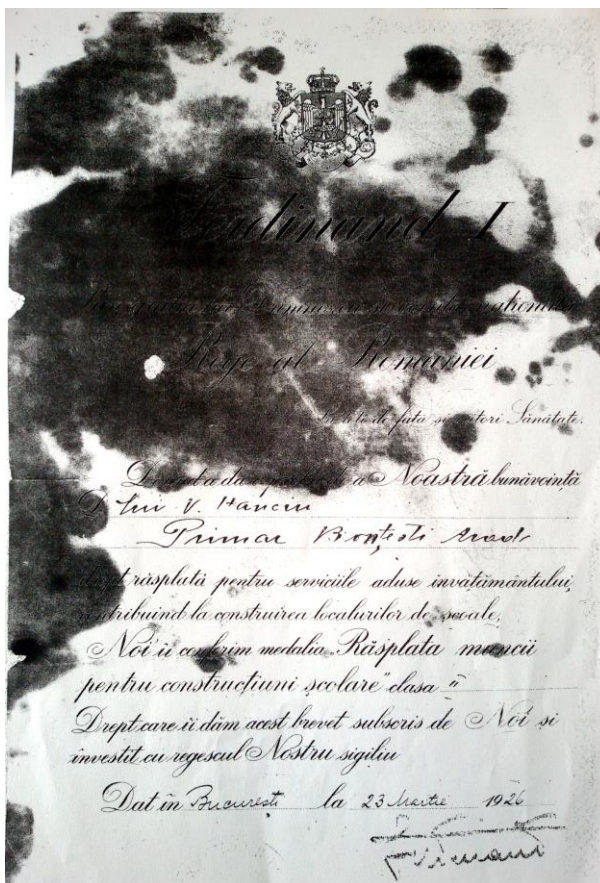 Ferdinand I
Rege al României
de față și viitori Sănătate.
a Noastră bunăvoință
D lui V. Hanciu
Primar Arad
drept răsplată pentru serviciile aduse invățământului,
contribuind la construirea localurilor de școale,
Noi îi conferim medalia „Răsplata muncii
pentru construcțiuni școlare" clasa II
Drept care îi dăm acest brevet subscris de Noi și
investit cu regescul Nostru sigiliu
Dat în București la 23 Martie 1926